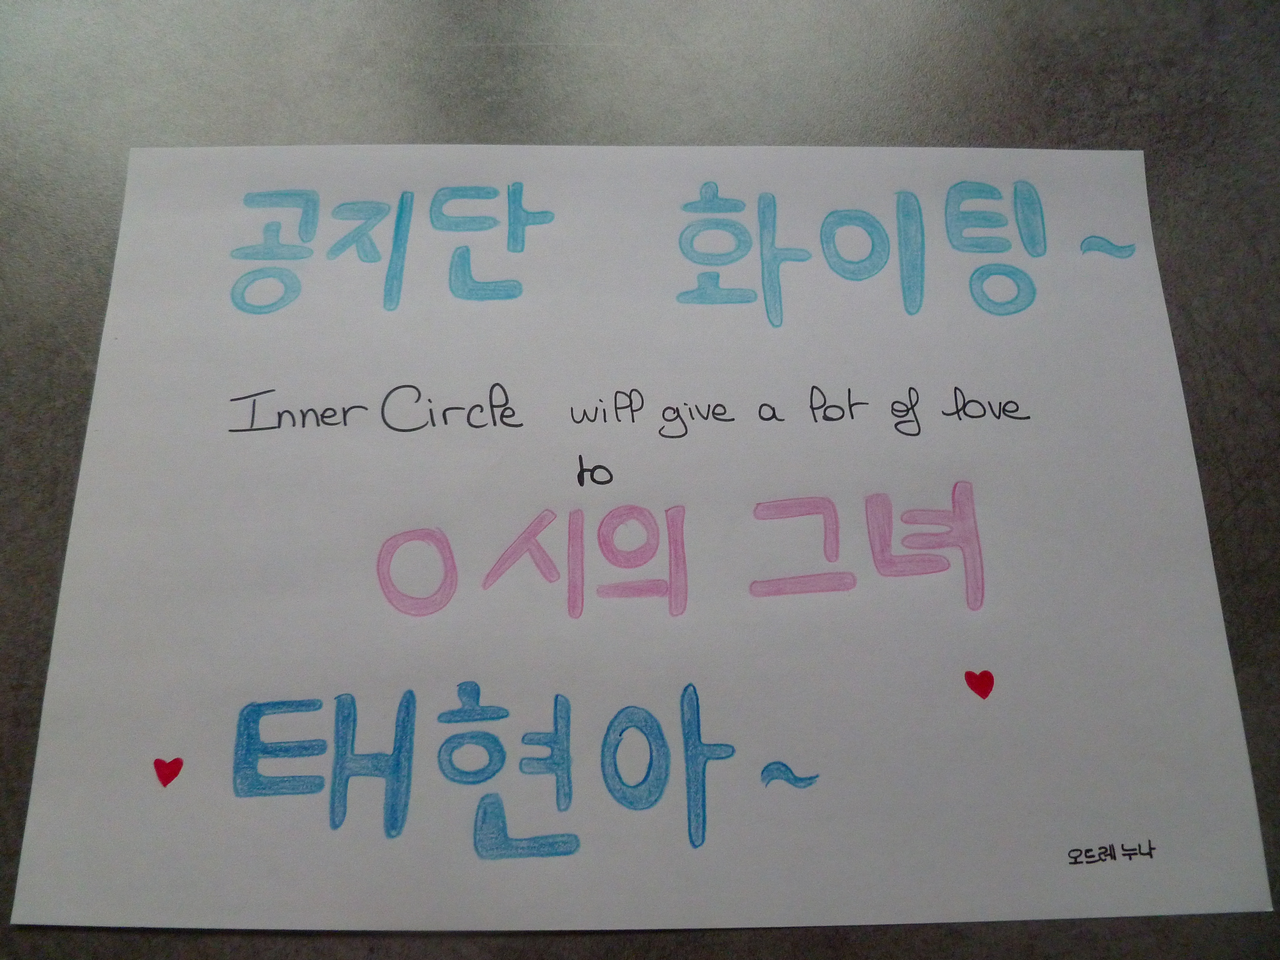 공지단 화이팅~
Inner Circle will give a lot of love
to
0시의 그녀
태현아~
오드레 누나